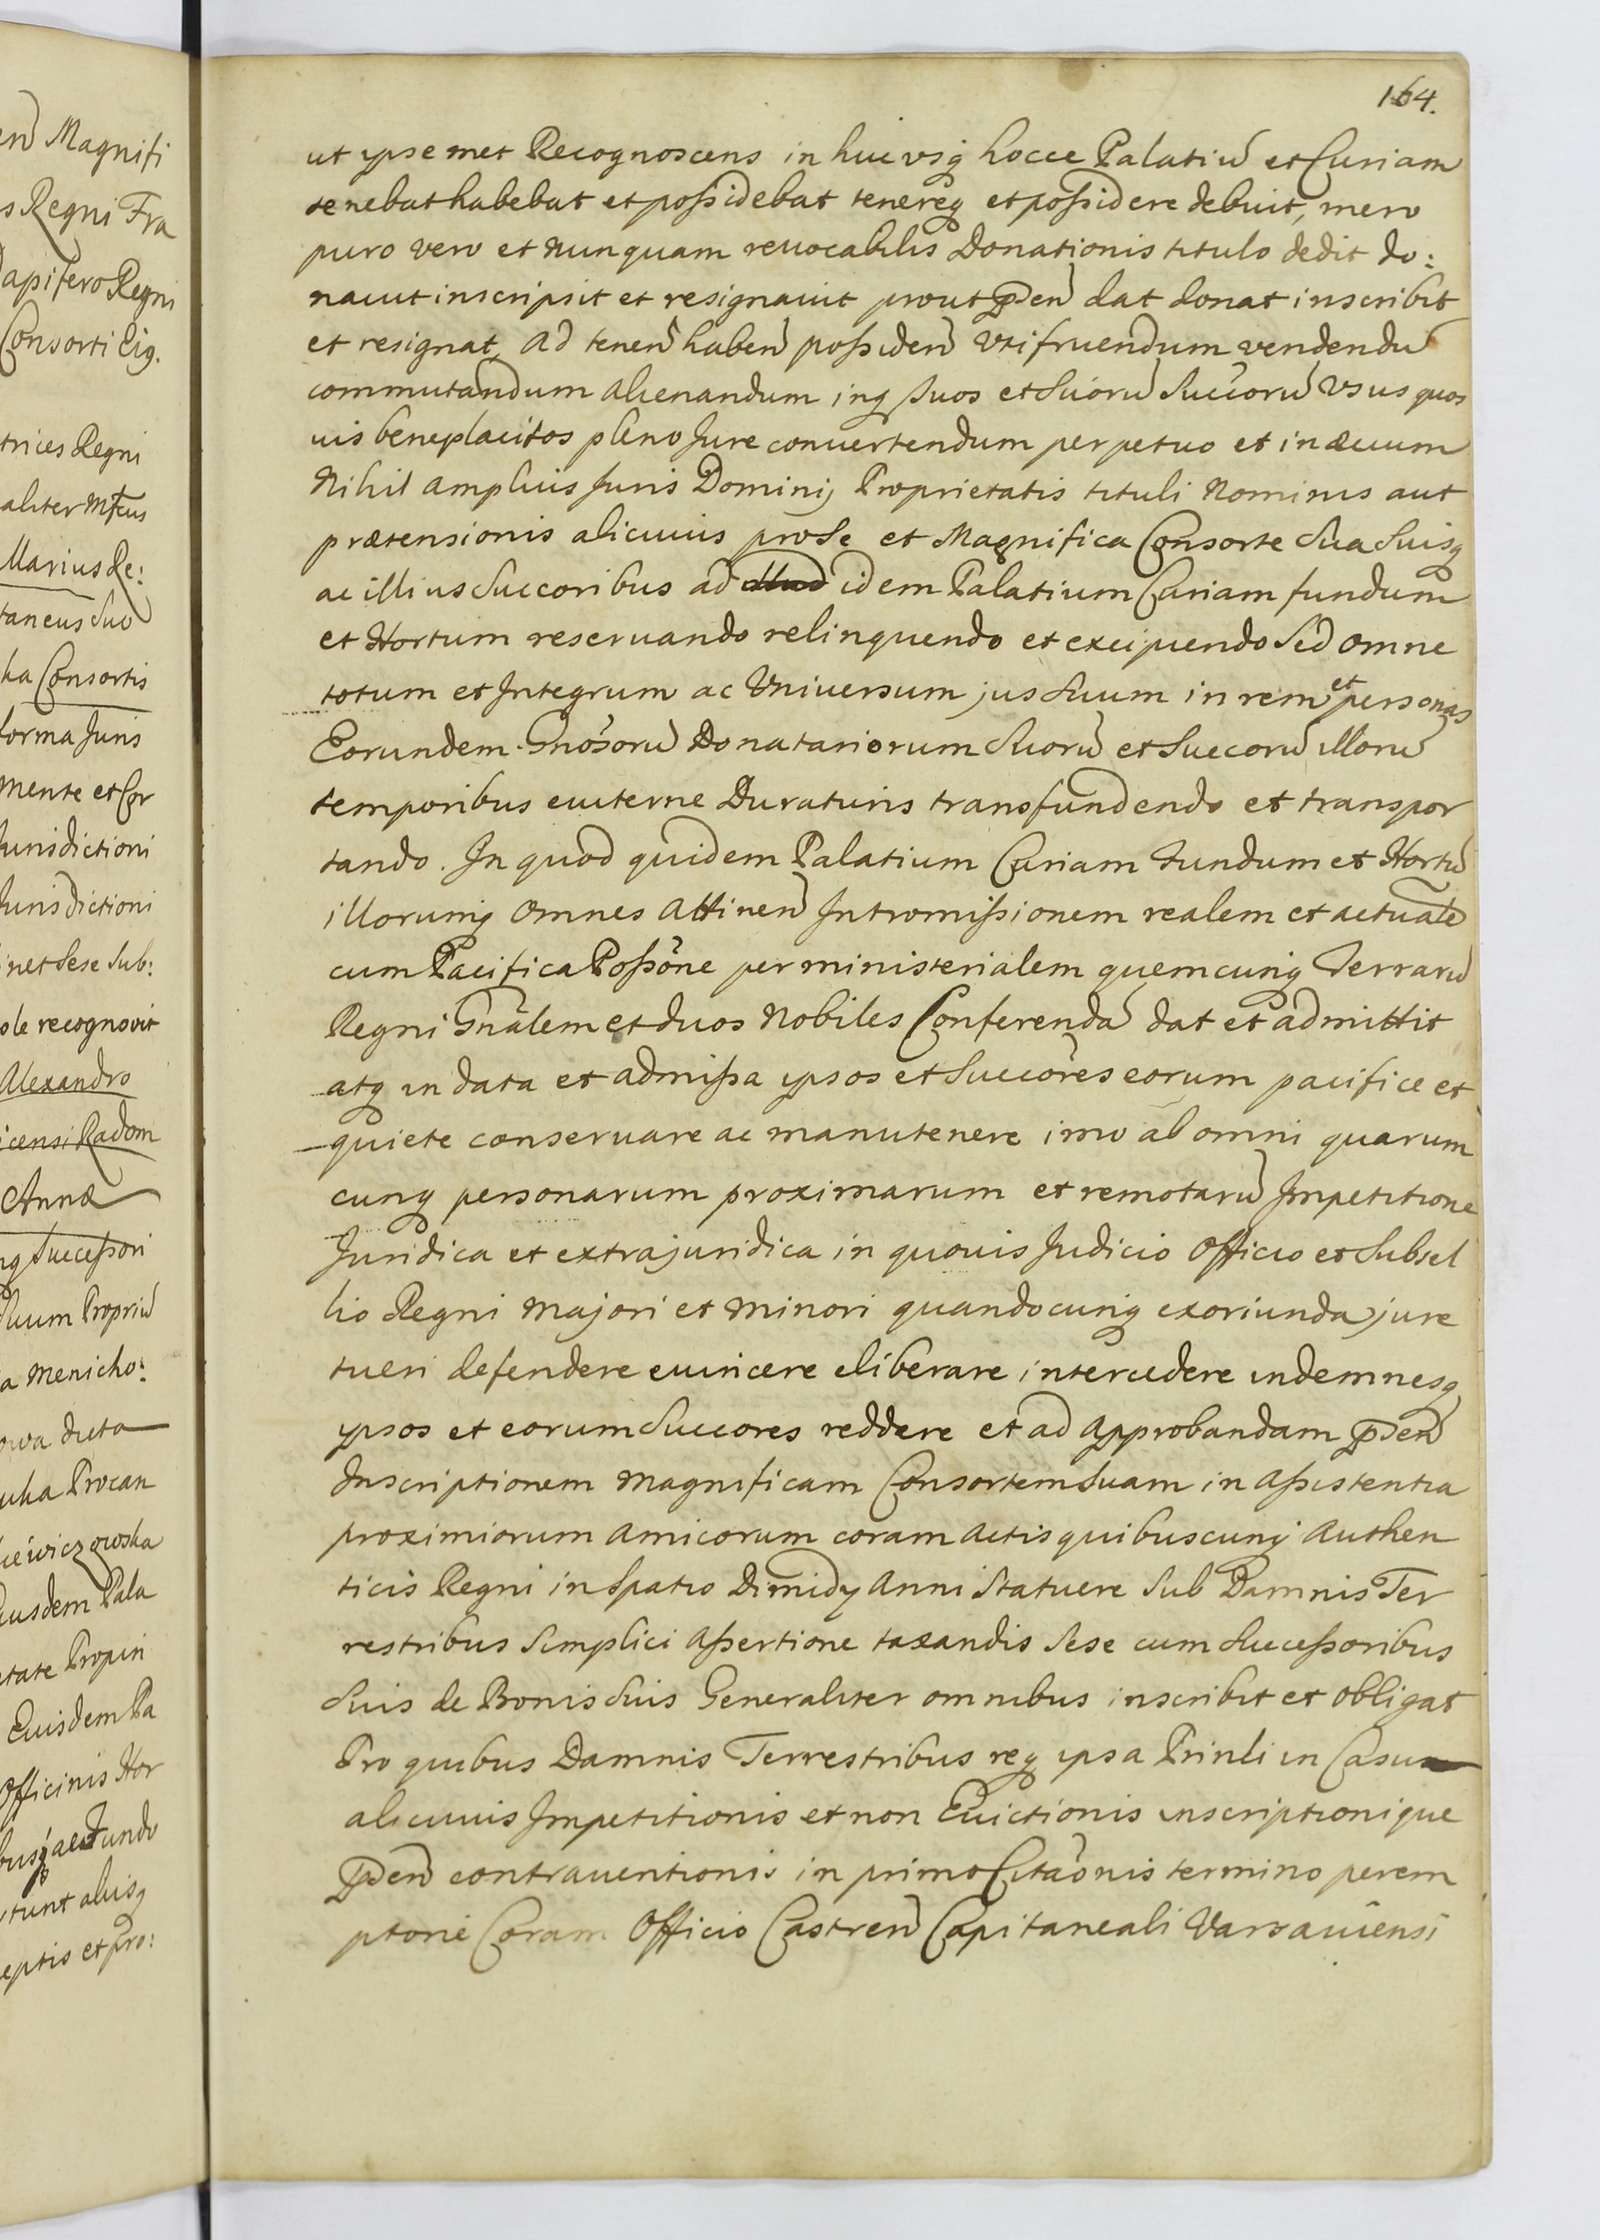 164.
ut ypsemet Recognoscens in huc vsq hocce Palatiũ et Curiam
tenebat habebat et possidebat tenereq et possidere debuit, mero
puro vero et nunquam reuocabilis Donationis titulo dedit do:
nauit inscripsit et resignauit prout pñseñ dat donat inscribit
et resignat, ad teneñ habeñ possideñ vtifruendum vendendũ
commutandum alienandum inq suos et suorũ succorũ vsus quos
uis beneplacitos pleno Jure conuertendum perpetuo et in æuum
Nihil amplius Juris Dominij Proprietatis tituli Nominis aut
prætensionis alicuius pro se et Magnifica Consorte Sua Suisq
ac illius Succoribus ad idem Palatium Curiam fundum
et Hortum reseruando relinquendo et excipiendo Sed omne
totum et Integrum ac Vniuersum jus Suum in rem et personas
Eorundem Gnõsorũ Donatariorum Suorũ et Succorũ illorũ
temporibus euiterne Duraturis transfundendo et transpor
tando. In quod quidem Palatium Curiam Fundum et Hortũ
illorumq omnes Attineñ Intromissionem realem et actualẽ
cum Pacifica Possõne per ministerialem quemcunq Terrarũ
Regni Gnãlem et duos Nobiles Conferendã dat et admittit
atq in data et admissa ypsos et Succõres eorum pacifice et
quiete conseruare ac manutenere imo ab omni quarum
cunq personarum proximarum et remotarũ Impetitione
Juridica et extrajuridica in quouis Judicio Officio et Subsel
lio Regni majori et minori quandocunq exoriunda jure
tueri defendere euincere eliberare intercedere indemnesq
ypsos et eorum Succores reddere et ad approbandam pñseñ
Inscriptionem Magnificam Consortem Suam in assistentia
proximiorum amicorum coram actis quibuscunq Authen
ticis Regni in Spatio Dimidij Anni Statuere Sub Damnis Ter
restribus Simplici Assertione taxandis Sese cum Successoribus
Suis de Bonis Suis Generaliter omnibus inscribit et obligat
Pro quibus Damnis Terrestribus req ipsa Prinli in Casu
alicuius Impetitionis et non Euictionis inscriptionique
pñseñ contrauentionis in primo Citãonis termino perem
ptorie Coram Officio Castreñ Capitaneali Varsauiensi
eñ Magnifi
s Regni Fra
Dapifero Regni
Consorti Eig.
trices Regni
aliter Mfcus
Marius Re:
taneus Suo
ka Consortis
forma Juris
mente et Cor
Jurisdictioni
Jurisdictioni
inet Sese Sub:
ole recognovit
Alexandro
icensi Radom
Annæ
nq Successori
Suum Propriũ
a Menicho:
owa dicta
uka Procan
kiewiczowska
Eiusdem Pala
etate Propin
Euisdem Pa
Officinis Hor
busq ac Fundo
rtunt aliisq
eptis et pro: